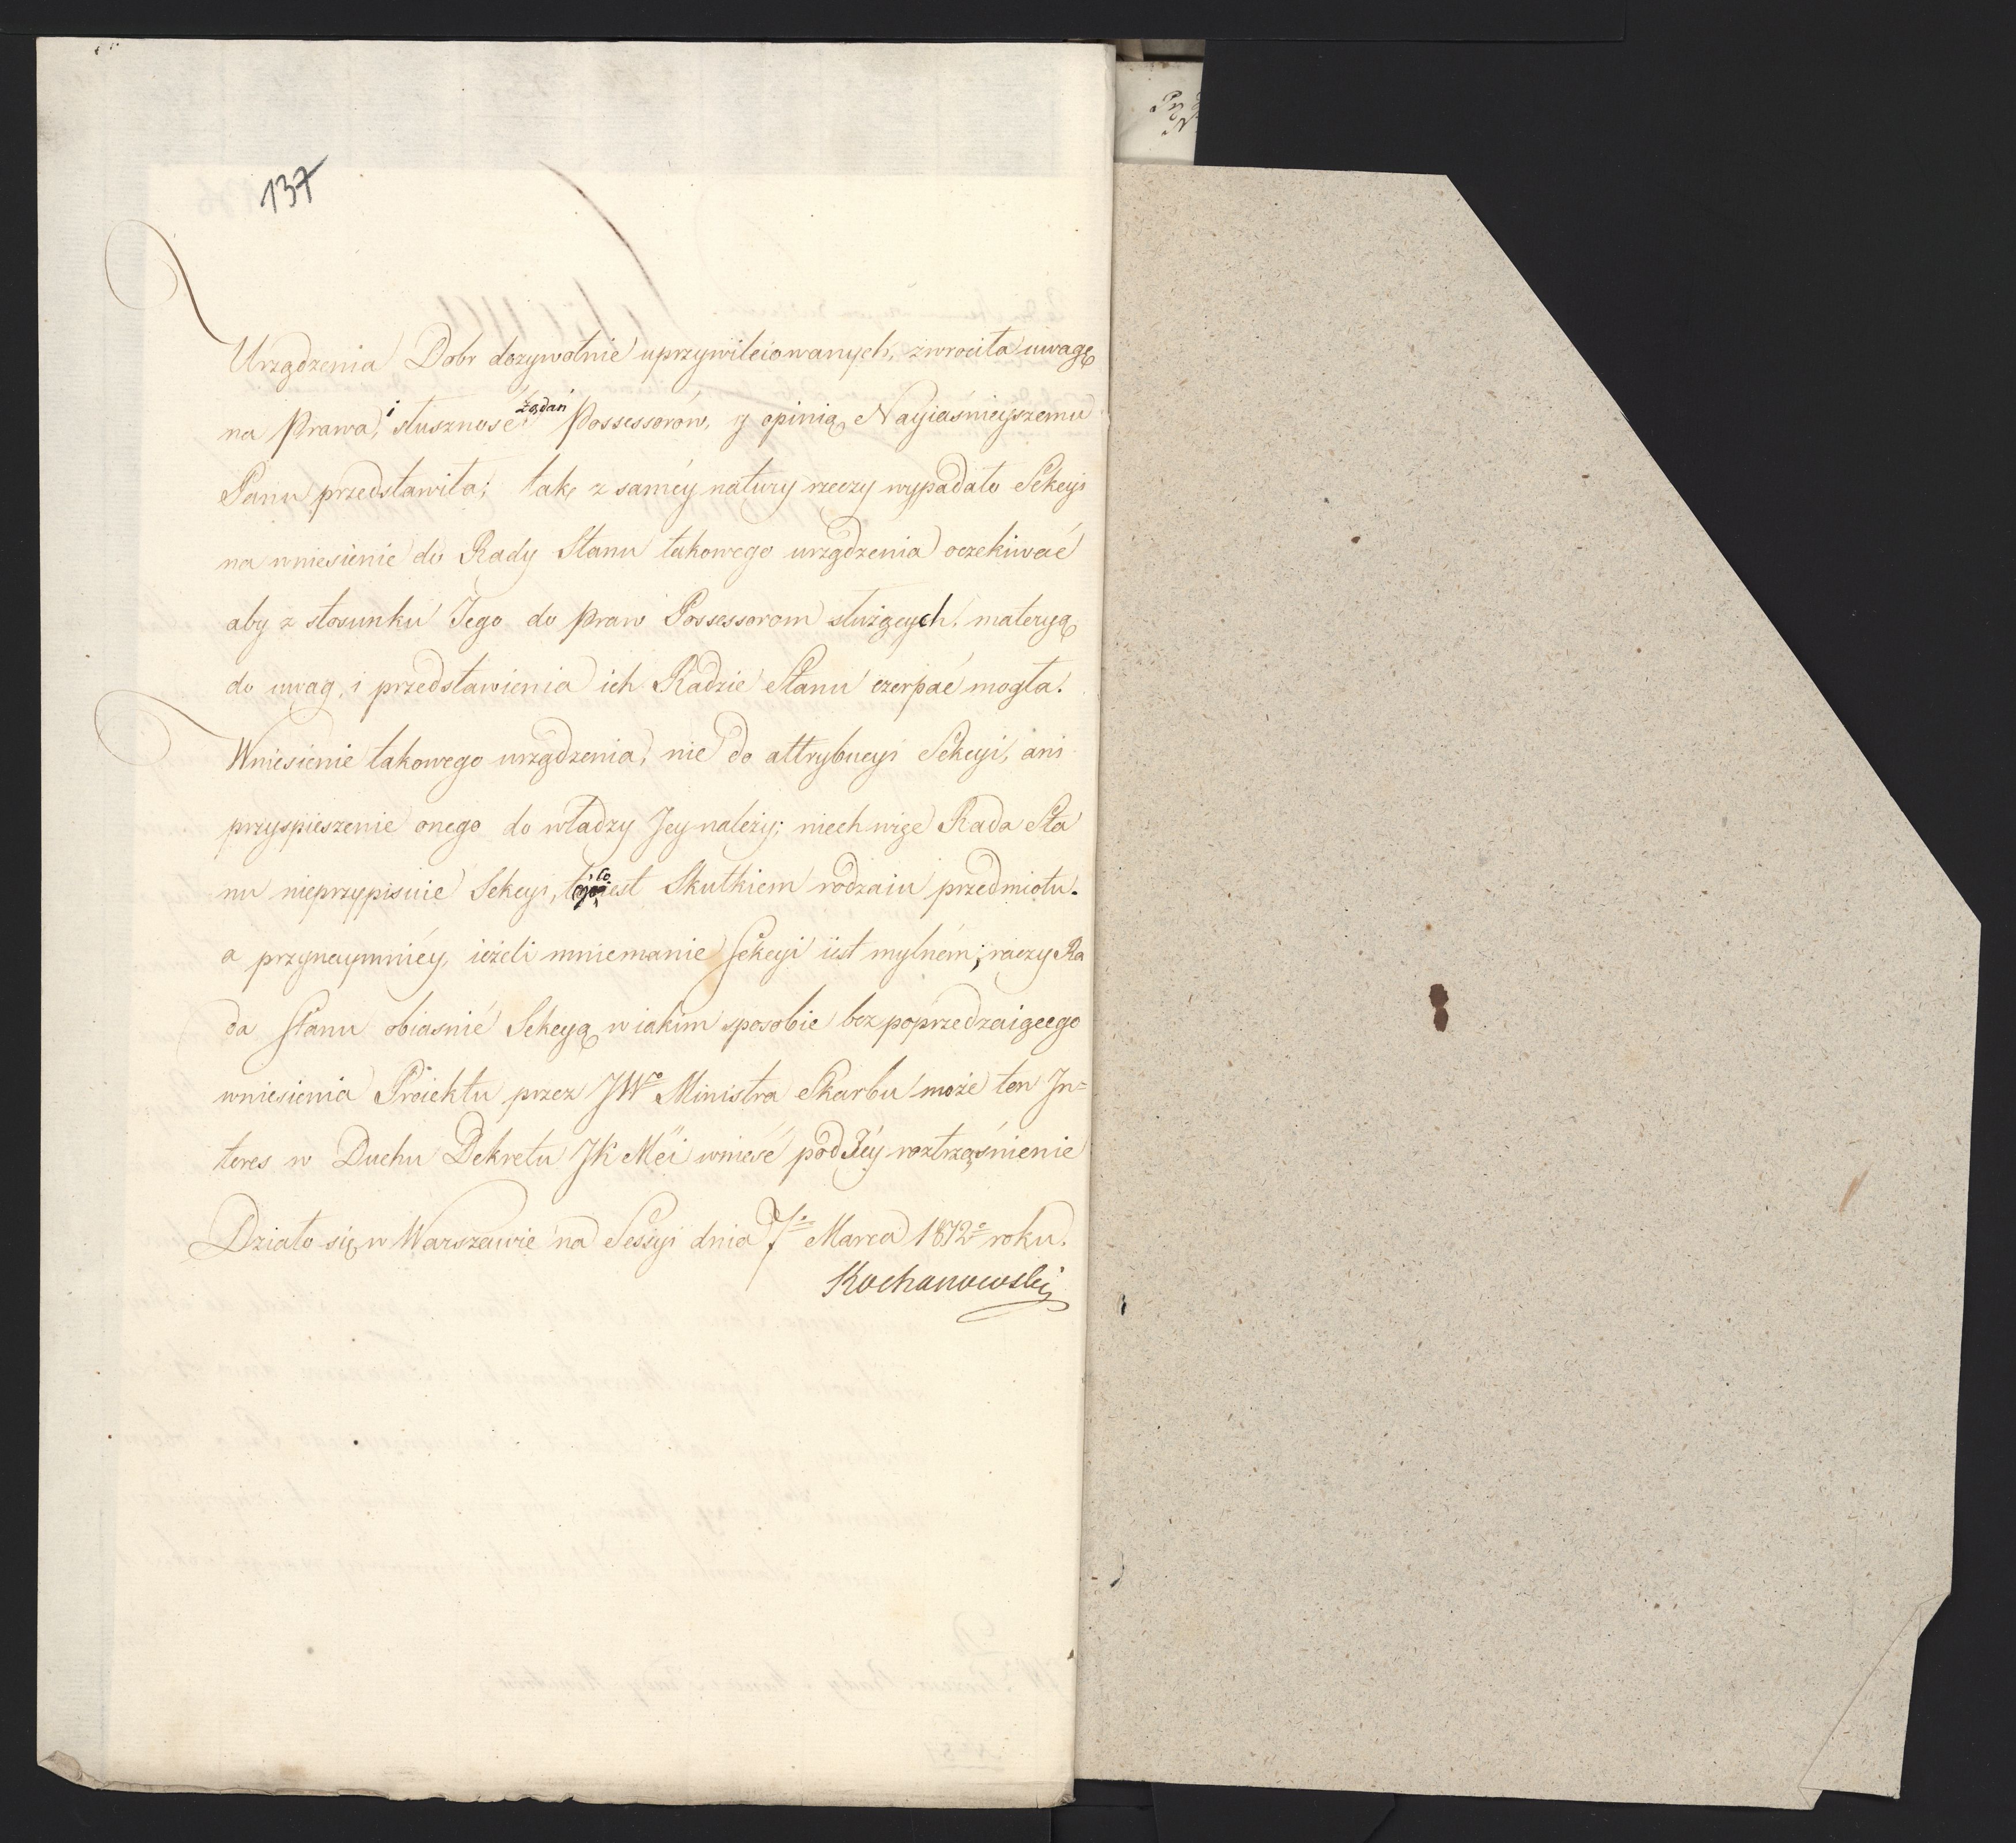 137
Urządzenia Dobr dozywotnie uprzywileiowanych, zwrociła uwagę
na Prawa, i słusznosć żądań Possessorów, y opinią Nayiaśnieyszemu
Panu przedstawiła; tak, z saméy natury rzeczy wypadało Sekcyi
na wniesienie do Rady Stanu takowego urządzenia oczekiwać
aby z stosunku Jego do Praw Possessorom służących, materyą
do uwag, i przedstawienia ich Radzie Stanu czerpać mogła.
Wniesienie takowego urządzenia, nie do attrybucyi Sekcyi, ani
przyspieszenie onego do władzy Jey należy; niech więc Rada Sta
nu nieprzypisuie Sekcyi, co iest Skutkiem rodzaiu przedmiotu.
a przynaymniéy, ieżeli mniemanie Sekcyi iest mylném; raczy Ra
da Stanu obiasnić Sekcyą w iakim sposobie bez poprzedzaiącego
wniesienia Proiektu przez JWo Ministra Skarbu może ten In=
teres w Duchu Dekretu JK Mci wnieść pod Jéy roztrząśnienie
Działo się w Warszawie na Sessyi dnia 7o Marca 1812o roku.
Kochanowski